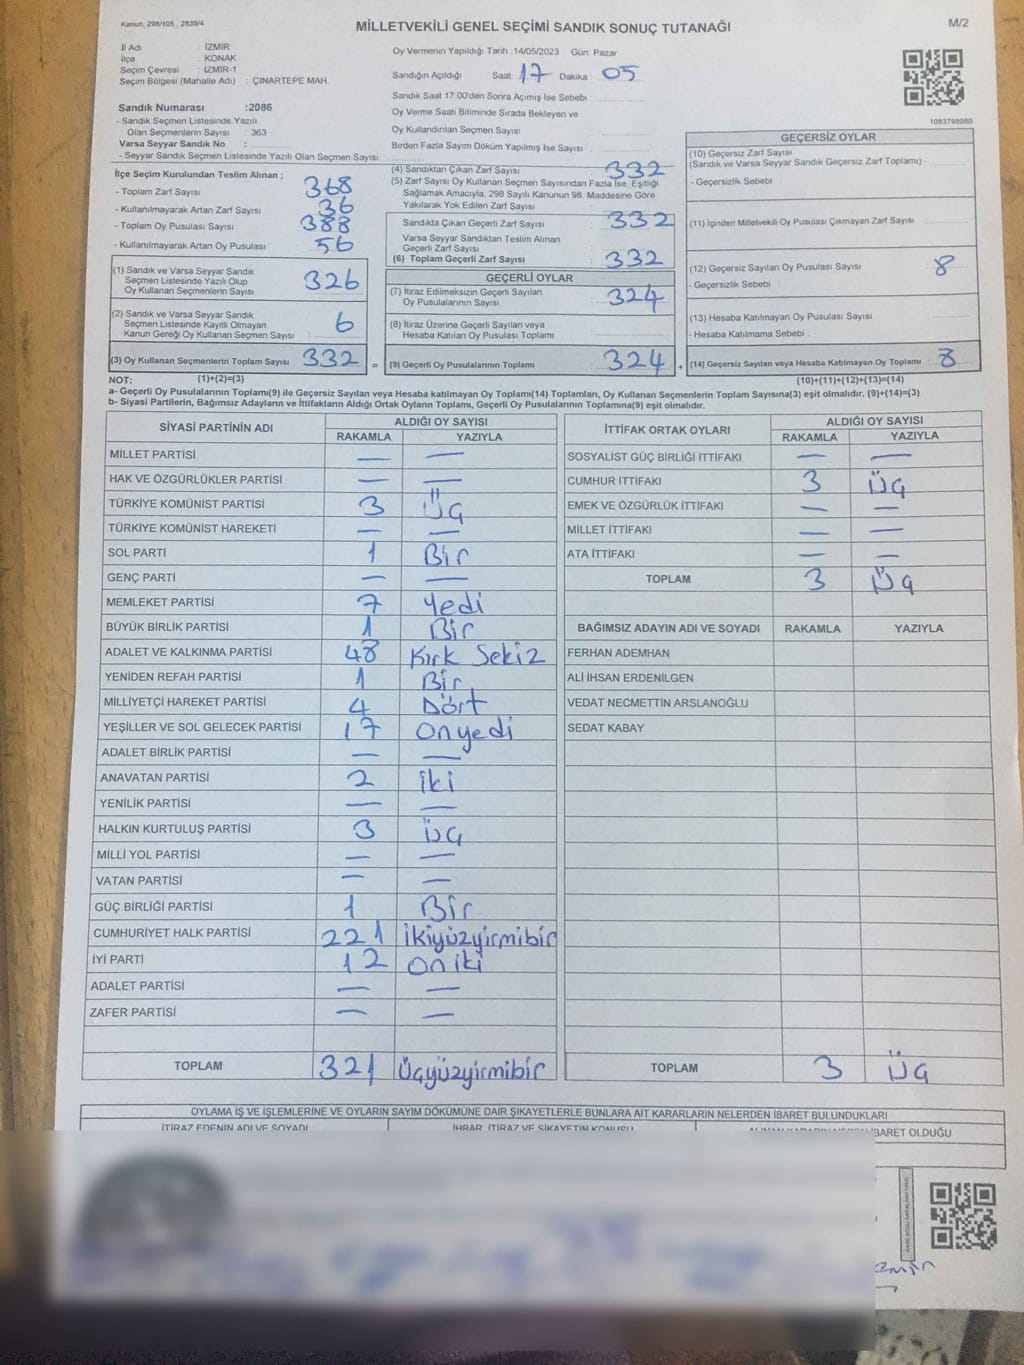 Kanun: 298/105 , 2839/4
MİLLETVEKİLİ GENEL SEÇİMİ SANDIK SONUÇ TUTANAĞI
M/2
İl Adı : İZMİR
İlçe : KONAK
Seçim Çevresi : İZMİR-1
Seçim Bölgesi (Mahalle Adı) : ÇINARTEPE MAH.
Oy Vermenin Yapıldığı Tarih :14/05/2023 Gün: Pazar
Sandığın Açıldığı Saat: 17 Dakika : 05
Sandık Saat 17:00'den Sonra Açımış İse Sebebi :
Oy Verme Saati Bitiminde Sırada Bekleyen ve
Oy Kullandırılan Seçmen Sayısı :
Birden Fazla Sayım Döküm Yapılmış İse Sayısı :
1083798080
Sandık Numarası :2086
- Sandık Seçmen Listesinde Yazılı
Olan Seçmenlerin Sayısı : 363
Varsa Seyyar Sandık No :
- Seyyar Sandık Seçmen Listesinde Yazılı Olan Seçmen Sayısı:
İlçe Seçim Kurulundan Teslim Alınan ;
- Toplam Zarf Sayısı : 368
- Kullanılmayarak Artan Zarf Sayısı : 36
- Toplam Oy Pusulası Sayısı : 388
- Kullanılmayarak Artan Oy Pusulası : 56
(1) Sandık ve Varsa Seyyar Sandık
Seçmen Listesinde Yazılı Olup
Oy Kullanan Seçmenlerin Sayısı : 326
(2) Sandık ve Varsa Seyyar Sandık
Seçmen Listesinde Kayıtlı Olmayan
Kanun Gereği Oy Kullanan Seçmen Sayısı : 6
(3) Oy Kullanan Seçmenlerin Toplam Sayısı : 332 =
(4) Sandıktan Çıkan Zarf Sayısı : 332
(5) Zarf Sayısı Oy Kullanan Seçmen Sayısından Fazla İse, Eşitliği
Sağlamak Amacıyla; 298 Sayılı Kanunun 98. Maddesine Göre
Yakılarak Yok Edilen Zarf Sayısı :
Sandıkta Çıkan Geçerli Zarf Sayısı : 332
Varsa Seyyar Sandıktan Teslim Alınan
Geçerli Zarf Sayısı :
(6) Toplam Geçerli Zarf Sayısı : 332
GEÇERLİ OYLAR
(7) İtiraz Edilmeksizin Geçerli Sayılan
Oy Pusulalarının Sayısı : 324
(8) İtiraz Üzerine Geçerli Sayılan veya
Hesaba Katılan Oy Pusulası Toplamı :
(9) Geçerli Oy Pusulalarının Toplamı : 324 +
GEÇERSİZ OYLAR
(10) Geçersiz Zarf Sayısı :
(Sandık ve Varsa Seyyar Sandık Geçersiz Zarf Toplamı)
- Geçersizlik Sebebi :
(11) İçinden Milletvekili Oy Pusulası Çıkmayan Zarf Sayısı :
(12) Geçersiz Sayılan Oy Pusulası Sayısı : 8
- Geçersizlik Sebebi :
(13) Hesaba Katılmayan Oy Pusulası Sayısı :
- Hesaba Katılmama Sebebi :
(14) Geçersiz Sayılan veya Hesaba Katılmayan Oy Toplamı : 8
NOT: (1)+(2)=(3)
(10)+(11)+(12)+(13)=(14)
a- Geçerli Oy Pusulalarının Toplamı(9) ile Geçersiz Sayılan veya Hesaba katılmayan Oy Toplamı(14) Toplamları, Oy Kullanan Seçmenlerin Toplam Sayısına(3) eşit olmalıdır. (9)+(14)=(3)
b- Siyasi Partilerin, Bağımsız Adayların ve İttifakların Aldığı Ortak Oyların Toplamı, Geçerli Oy Pusulalarının Toplamına(9) eşit olmalıdır.
SİYASİ PARTİNİN ADI
ALDIĞI OY SAYISI
RAKAMLA YAZIYLA
MİLLET PARTİSİ — —
HAK VE ÖZGÜRLÜKLER PARTİSİ — —
TÜRKİYE KOMÜNİST PARTİSİ 3 Üç
TÜRKİYE KOMÜNİST HAREKETİ — —
SOL PARTİ 1 Bir
GENÇ PARTİ — —
MEMLEKET PARTİSİ 7 Yedi
BÜYÜK BİRLİK PARTİSİ 1 Bir
ADALET VE KALKINMA PARTİSİ 48 Kırk Sekiz
YENİDEN REFAH PARTİSİ 1 Bir
MİLLİYETÇİ HAREKET PARTİSİ 4 Dört
YEŞİLLER VE SOL GELECEK PARTİSİ 17 Onyedi
ADALET BİRLİK PARTİSİ — —
ANAVATAN PARTİSİ 2 İki
YENİLİK PARTİSİ — —
HALKIN KURTULUŞ PARTİSİ 3 Üç
MİLLİ YOL PARTİSİ — —
VATAN PARTİSİ — —
GÜÇ BİRLİĞİ PARTİSİ 1 Bir
CUMHURİYET HALK PARTİSİ 221 İkiyüzyirmibir
İYİ PARTİ 12 Oniki
ADALET PARTİSİ — —
ZAFER PARTİSİ — —
TOPLAM 321 Üçyüzyirmibir
İTTİFAK ORTAK OYLARI
ALDIĞI OY SAYISI
RAKAMLA YAZIYLA
SOSYALİST GÜÇ BİRLİĞİ İTTİFAKI — —
CUMHUR İTTİFAKI 3 Üç
EMEK VE ÖZGÜRLÜK İTTİFAKI — —
MİLLET İTTİFAKI — —
ATA İTTİFAKI — —
TOPLAM 3 Üç
BAĞIMSIZ ADAYIN ADI VE SOYADI RAKAMLA YAZIYLA
FERHAN ADEMHAN
ALİ İHSAN ERDENİLGEN
VEDAT NECMETTİN ARSLANOĞLU
SEDAT KABAY
TOPLAM 3 Üç
OYLAMA İŞ VE İŞLEMLERİNE VE OYLARIN SAYIM DÖKÜMÜNE DAİR ŞİKAYETLERLE BUNLARA AİT KARARLARIN NELERDEN İBARET BULUNDUKLARI
İTİRAZ EDENİN ADI VE SOYADI İHBAR, İTİRAZ VE ŞİKAYETİN KONUSU
İBARET OLDUĞU